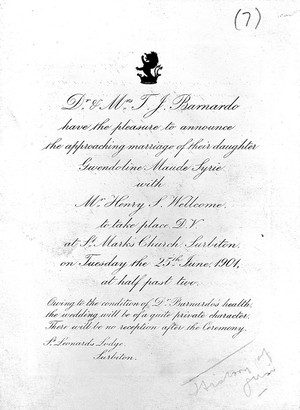 (7)
Dr. & Mrs. T. J. Barnardo
have the pleasure to announce
the approaching marriage of their daughter
Gwendoline Maude Syrie
with
Mr. Henry S. Wellcome.
to take place D.V.
at St. Marks Church, Surbiton.
on Tuesday the 25th June, 1901,
at half past two.
Owing to the condition of Dr. Barnardo's health;
the wedding will be of a quite private character.
There will be no reception after the Ceremony.
St. Leonards Lodge,
Surbiton.
History of